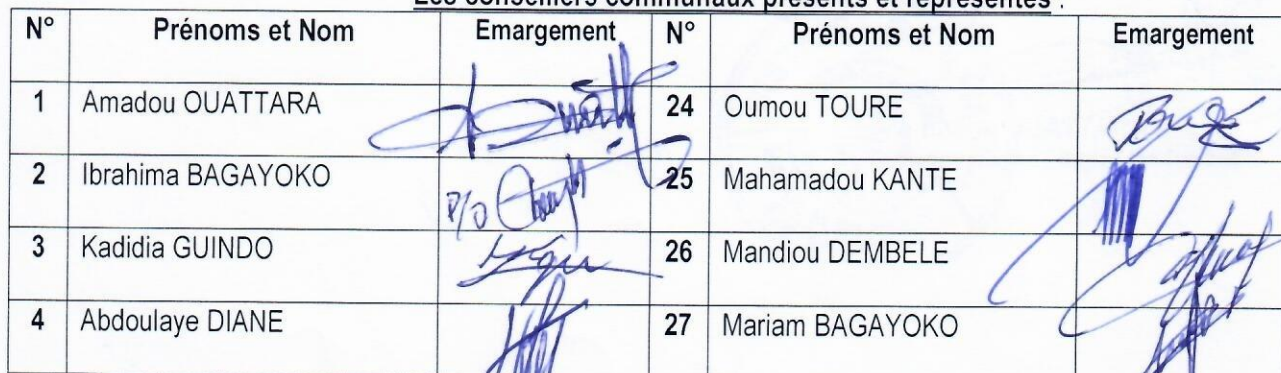 Les conseillers communaux présents et représentés :
N° Prénoms et Nom Emargement N° Prénoms et Nom Emargement
1 Amadou OUATTARA 24 Oumou TOURE
2 Ibrahima BAGAYOKO P/O 25 Mahamadou KANTE
3 Kadidia GUINDO 26 Mandiou DEMBELE
4 Abdoulaye DIANE 27 Mariam BAGAYOKO